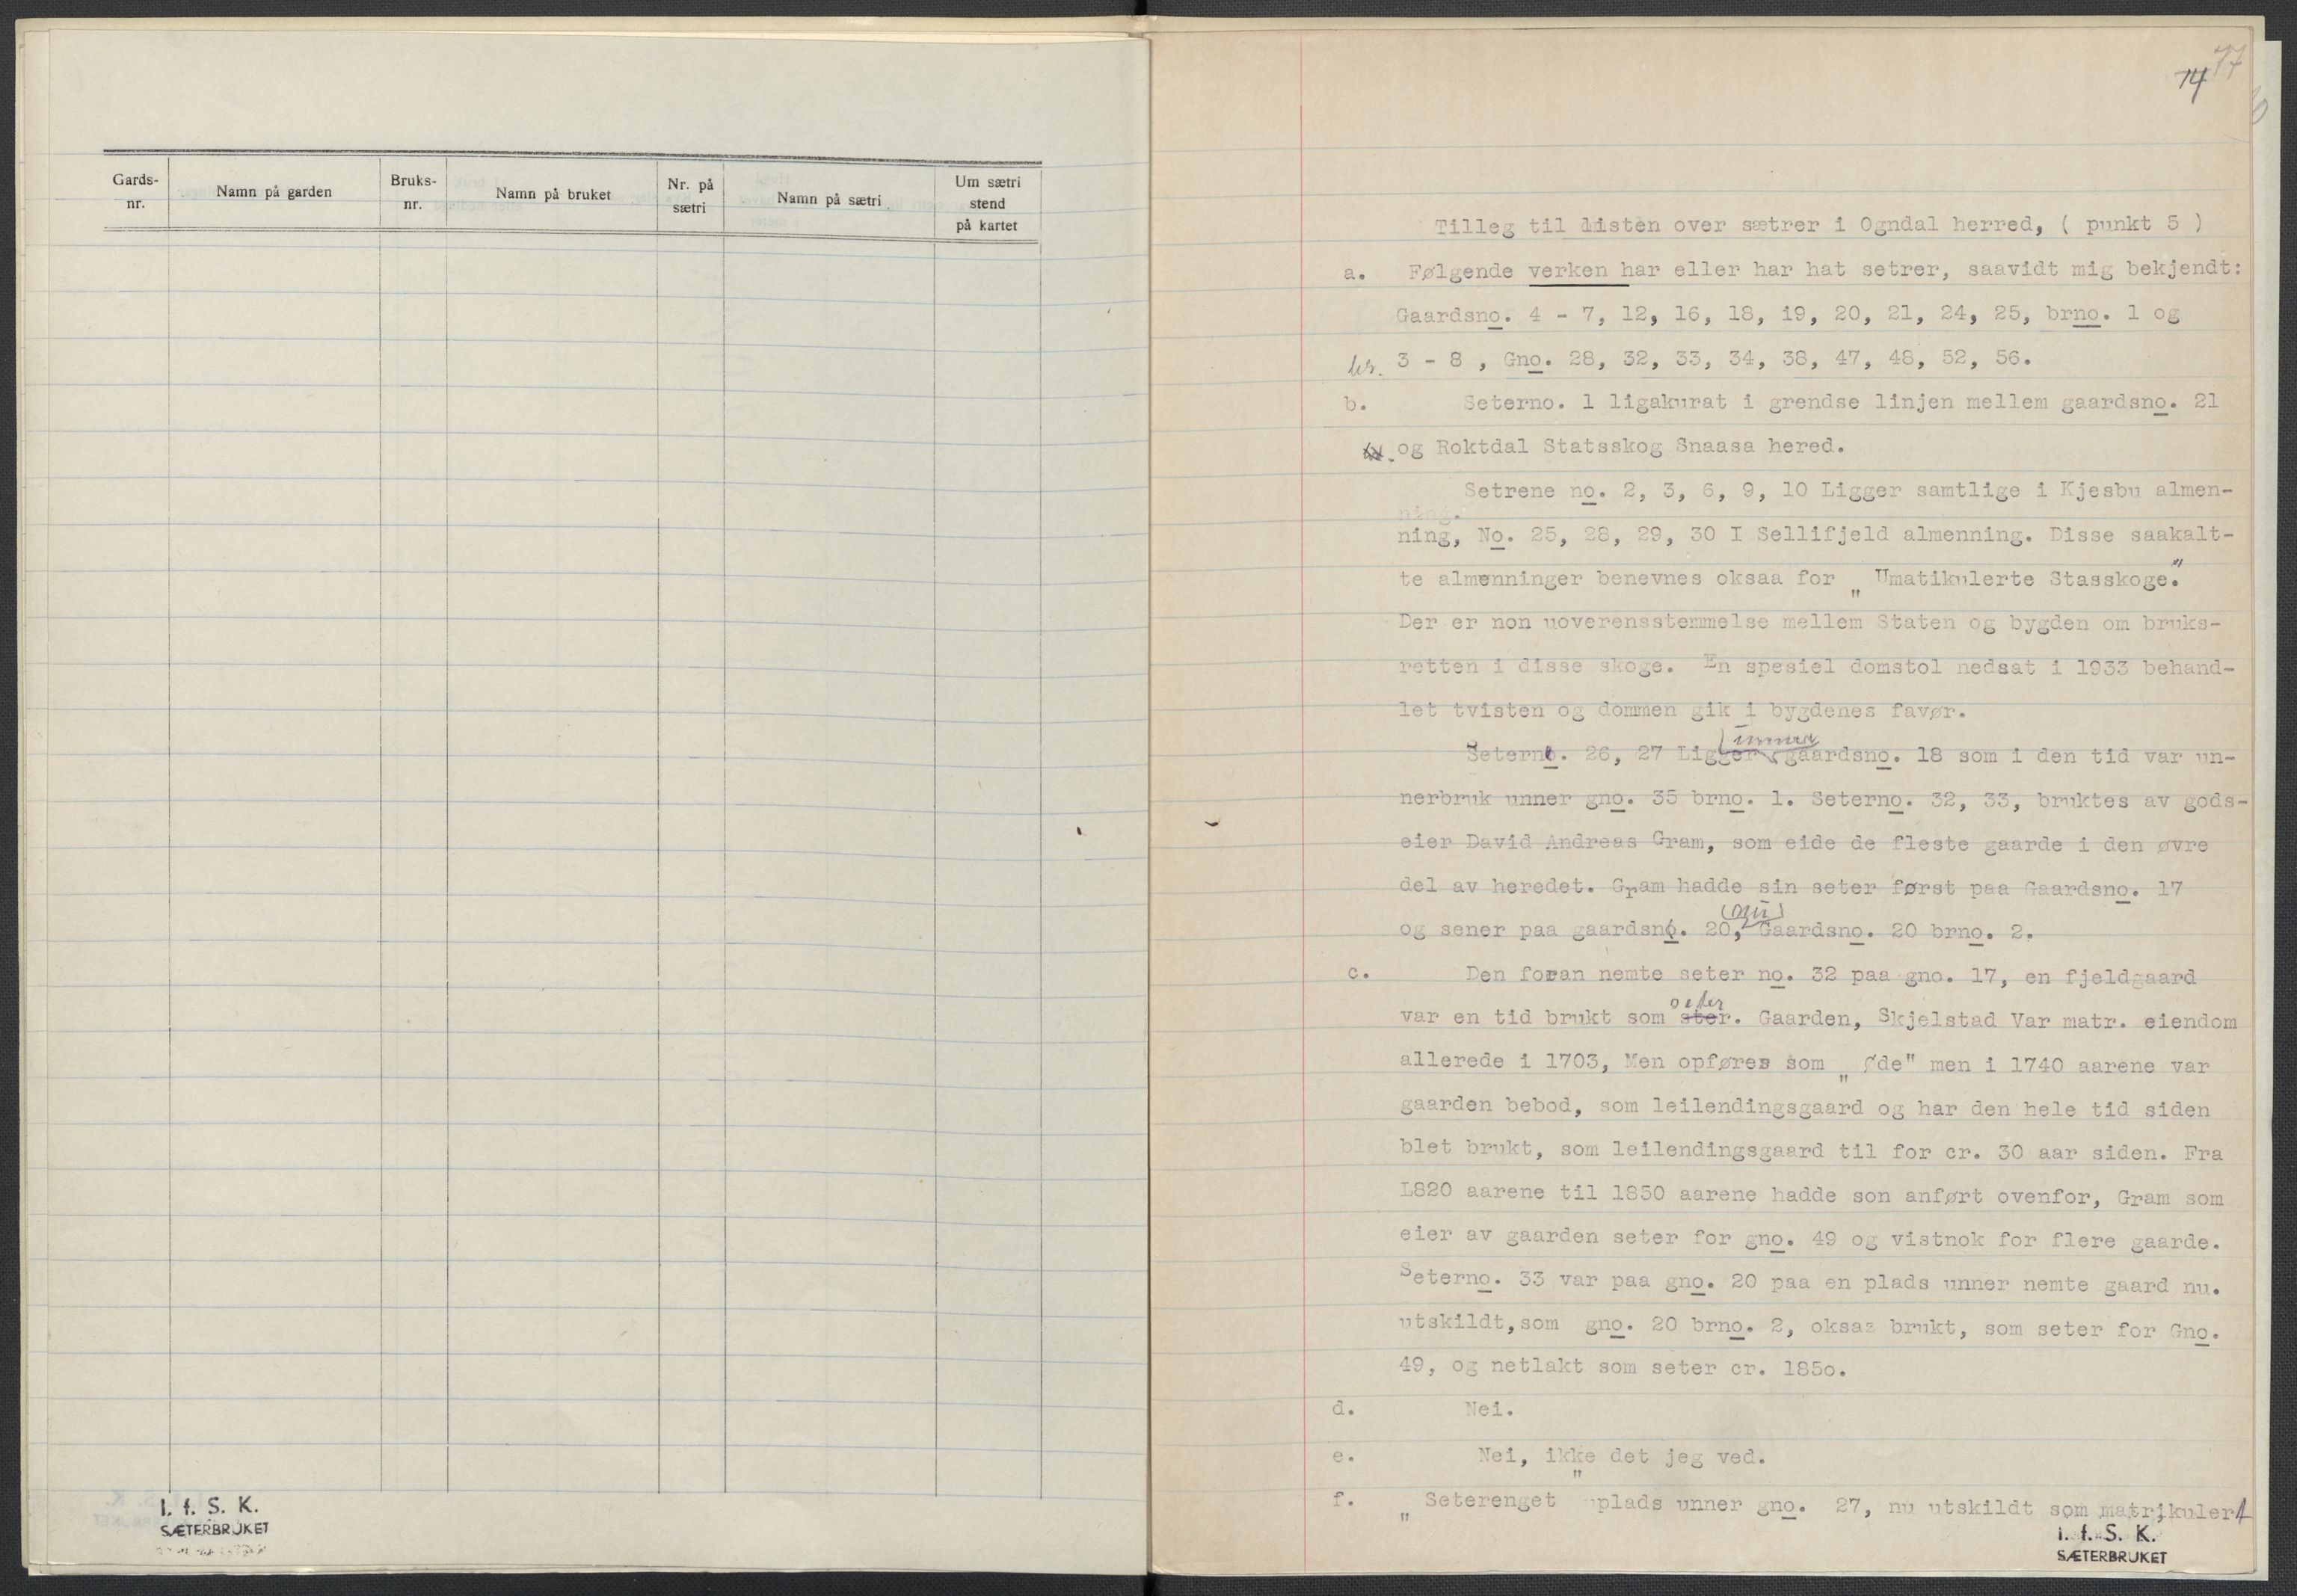 Gards-
nr.
Namn på garden
Bruks-
nr.
Namn på bruket
Nr. på
sætri
Namn på sætri
Um sætri
stend
på kartet
I. f. S. K.
SÆTERBRUKET
77
14
Tilleg til listen over sætrer i Ogndal herred, ( punkt 5 )
a. Følgende verken har eller har hat setrer, saavidt mig bekjendt:
Gaardsno. 4 - 7, 12, 16, 18, 19, 20, 21, 24, 25, brno. 1 og
3 - 8 , Gno. 28, 32, 33, 34, 38, 47, 48, 52, 56.
b. Seterno. 1 ligakurat i grendse linjen mellem gaardsno. 21
og Roktdal Statsskog Snaasa hered.
Setrene no. 2, 3, 6, 9, 10 Ligger samtlige i Kjesbu almen-
ning.
ning, No. 25, 28, 29, 30 I Sellifjeld almenning. Disse saakalt-
te almenninger benevnes oksaa for „ Umatikulerte Stasskoge."
Der er non uoverensstemmelse mellem Staten og bygden om bruks-
retten i disse skoge. En spesiel domstol nedsat i 1933 behand-
let tvisten og dommen gik i bygdenes favør.
Seterno. 26, 27 Ligger (unner gaardsno. 18 som i den tid var un-
nerbruk unner gno. 35 brno. 1. Seterno. 32, 33, bruktes av gods-
eier David Andreas Gram, som eide de fleste gaarde i den øvre
del av heredet. Gram hadde sin seter først paa Gaardsno. 17
og sener paa gaardsno. 20, (nu) Gaardsno. 20 brno. 2.
c. Den foran nemte seter no. 32 paa gno. 17, en fjeldgaard
var en tid brukt som ster. seter Gaarden, Skjelstad Var matr. eiendom
allerede i 1703, Men opføres som „ Øde" men i 1740 aarene var
gaarden bebod, som leilendingsgaard og har den hele tid siden
blet brukt, som leilendingsgaard til for cr. 30 aar siden. Fra
L820 aarene til 1850 aarene hadde son anført ovenfor, Gram som
eier av gaarden seter for gno. 49 og vistnok for flere gaarde.
Seterno. 33 var paa gno. 20 paa en plads unner nemte gaard nu.
utskildt,som gno. 20 brno. 2, oksaa brukt, som seter for Gno.
49, og netlakt som seter cr. 185o.
d. Nei.
e. Nei, ikke det jeg ved.
f. „ Seterenget " plads unner gno. 27, nu utskildt som matrikulert
I. f. S. K.
SÆTERBRUKET